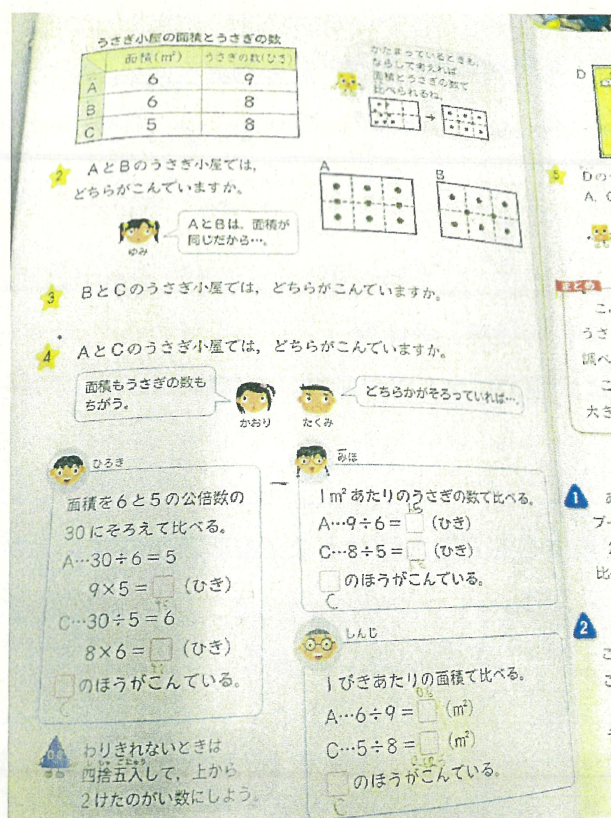 うさぎ小屋の面積とうさぎの数
面積(m²) うさぎの数(ひき)
A 6 9
B 6 8
C 5 8
かたまっているときも、
ならして考えれば
面積とうさぎの数で
比べられるね。
2 AとBのうさぎ小屋では,
どちらがこんでいますか。
A
B
AとBは、面積が
同じだから…。
ゆみ
3 BとCのうさぎ小屋では, どちらがこんでいますか。
4 AとCのうさぎ小屋では, どちらがこんでいますか。
面積もうさぎの数も
ちがう。
かおり
たくみ
どちらかがそろっていれば…。
ひろき
面積を6と5の公倍数の
30にそろえて比べる。
A…30÷6=5
9×5=□(ひき)
C…30÷5=6
8×6=□(ひき)
□のほうがこんでいる。
C
みほ
1m²あたりのうさぎの数で比べる。
1.5
A…9÷6=□(ひき)
C…8÷5=□(ひき)
□のほうがこんでいる。
C
しんじ
1ぴきあたりの面積で比べる。
A…6÷9=□(m²)
C…5÷8=□(m²)
□のほうがこんでいる。
C
わりきれないときは
四捨五入して, 上から
2けたのがい数にしよう。
D
5 Dの
A, C
まとめ
こ
うさ
調べ
こ
大き
1
プー
比
2